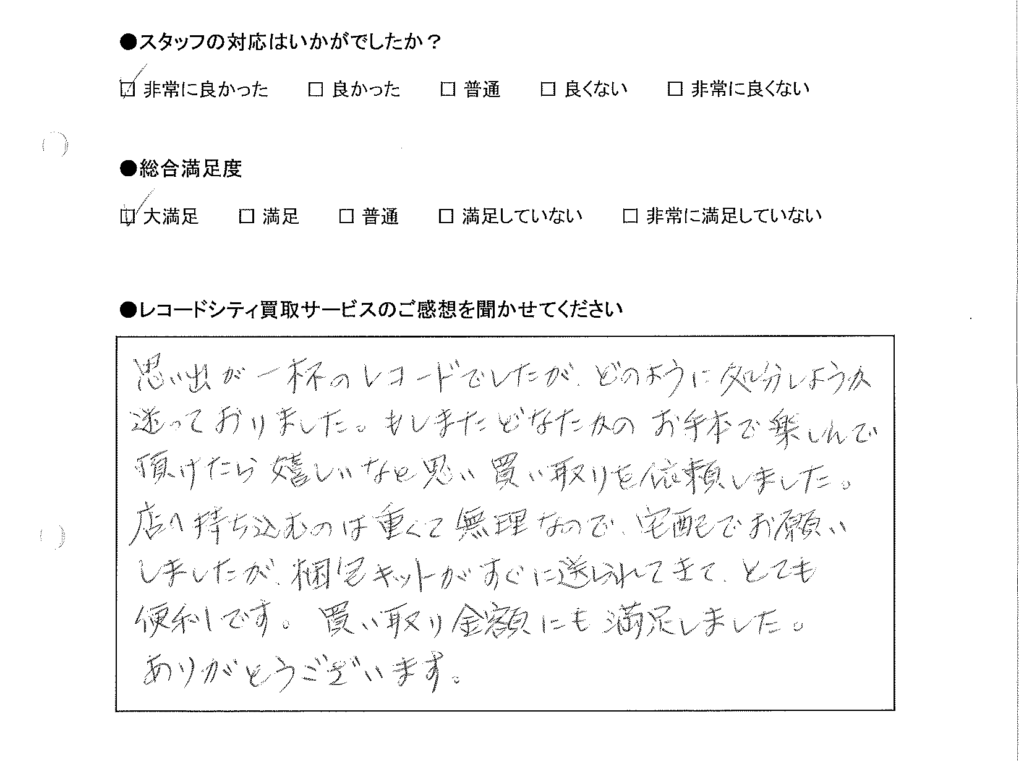 ●スタッフの対応はいかがでしたか？
☑ 非常に良かった □ 良かった □ 普通 □ 良くない □ 非常に良くない
●総合満足度
☑ 大満足 □ 満足 □ 普通 □ 満足していない □ 非常に満足していない
●レコードシティ買取サービスのご感想を聞かせてください
思い出が一杯のレコードでしたが、どのように処分しようか
迷っておりました。もしまたどなたかのお手本で楽しんで
頂けたら嬉しいなと思い買い取りを依頼しました。
店へ持ち込むのは重くて無理なので、宅配でお願い
しましたが、梱包キットがすぐに送られてきて、とても
便利です。買い取り金額にも満足しました。
ありがとうございます。